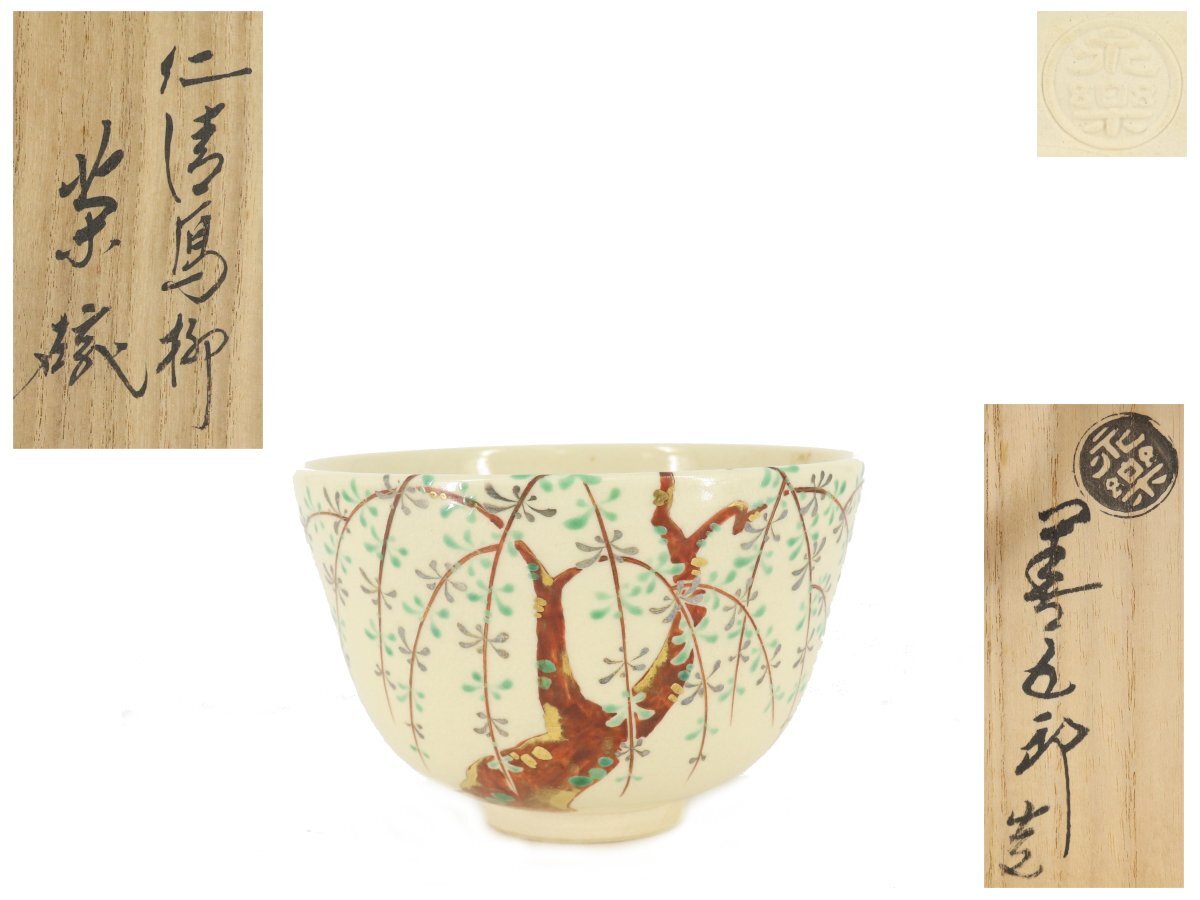 仁清写柳
茶碗
永樂
永樂
善五郎造